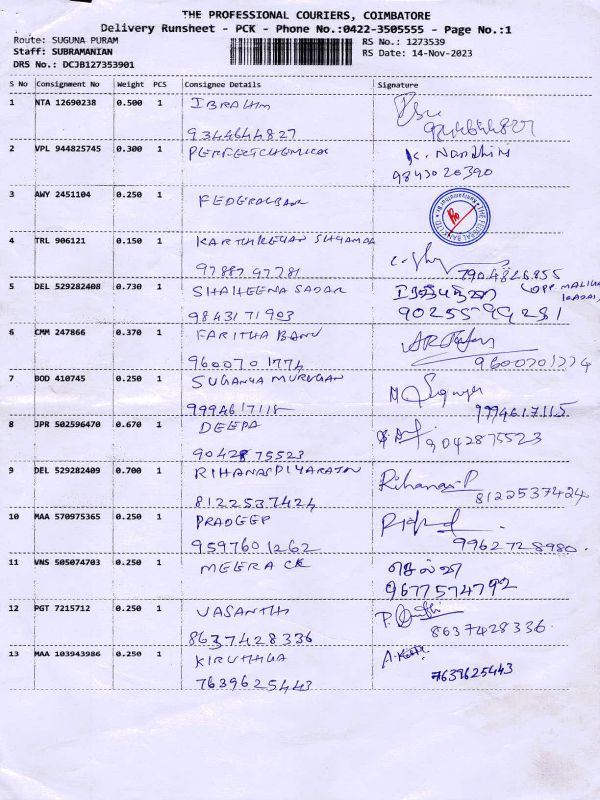 THE PROFESSIONAL COURIERS, COIMBATORE
Delivery Runsheet - PCK - Phone No.:0422-3505555 - Page No.:1
Route: SUGUNA PURAM RS No.: 1273539
Staff: SUBRAMANIAN RS Date: 14-Nov-2023
DRS No.: DCJB127353901
S No Consignment No Weight PCS Consignee Details Signature
1 NTA 12690238 0.500 1 IBRAHIM
9344644827 9344644827
2 VPL 944825745 0.300 1 PERFECTCHEMICA K. Nandhini
9843020390
3 AWY 2451104 0.250 1 FEDERALBANK
THE FEDERAL BANK LTD.
4 TRL 906121 0.150 1 KARTHIKEYAN SHYAMALA
97887 97781 7904826855
5 DEL 529282408 0.730 1 SHAHEENA SADAR (OPP. MALIGA
KADAI)
9843171903 9025599251
6 CMM 247866 0.370 1 FARITHA BANU
9600701774 9600701774
7 BOD 410745 0.250 1 SUGANYA MURUGAN
9994617115 9994617115
8 JPR 502596470 0.670 1 DEEPA
9042875523 9042875523
9 DEL 529282409 0.700 1 RIHANAS PIYARAJAN Rihanas.P
8122537424 8122537424
10 MAA 570975365 0.250 1 PRADEEP
9597601262 9962728980.
11 VNS 505074703 0.250 1 MEERA CK செல்வி
9677574792
12 PGT 7215712 0.250 1 VASANTHI
8637428336 8637428336.
13 MAA 103943986 0.250 1 KIRUTHIGA
7639625443 7639625443